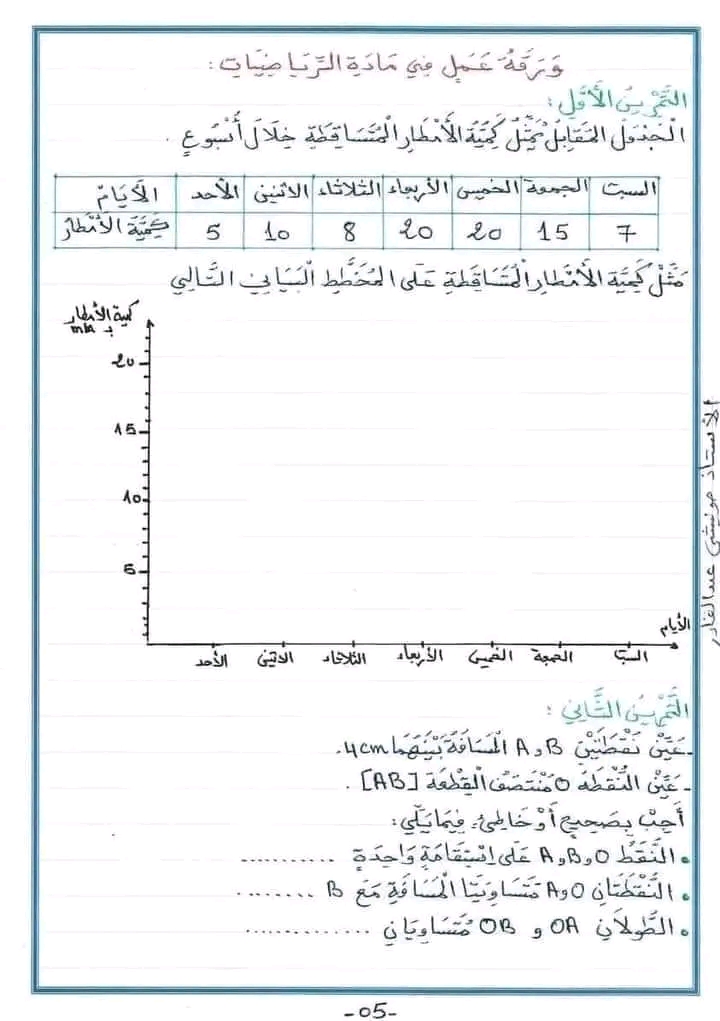 وَرَقَةُ عَمَلٍ فِي مَادَةِ الرِّيَاضِيَّاتِ :
التَّمْرِينُ الأَوَّلُ :
الْجَدْوَلُ المُقَابِلُ يُمَثِّلُ كَمِّيَّةَ الأَمْطَارِ المُتَسَاقِطَةِ خِلَالَ أُسْبُوعٍ .
الأَيَّامُ الأحد الاثنين الثلاثاء الأربعاء الخميس الجمعة السبت
كَمِّيَّةُ الأَمْطَارِ 5 10 8 20 20 15 7
مَثِّلْ كَمِّيَّةَ الأَمْطَارِ المُتَسَاقِطَةِ عَلَى المُخَطَّطِ الْبَيَانِي التَّالِي
كمية الأمطار
بـ mm
20
15
10
5
الأيام
الأحد الاثنين الثلاثاء الأربعاء الخميس الجمعة السبت
التَّمْرِينُ الثَّانِي :
- عَيِّنْ نُقْطَتَيْنِ A و B المَسَافَةُ بَيْنَهُمَا 4cm.
- عَيِّنْ النُّقْطَةَ O مُنْتَصَفُ الْقِطْعَةِ [AB] .
أَجِبْ بِصَحِيحٍ أَوْ خَاطِئٍ فِيمَا يَلِي :
• النُّقَطُ A و B و O عَلَى اِسْتِقَامَةٍ وَاحِدَةٍ ...........
• النُّقْطَتَانِ A و O مُتَسَاوِيَتَا الْمَسَافَةِ مَعَ B ........
• الطُّولَانِ OA و OB مُتَسَاوِيَانِ .............
الأستاذ حونيشي عبد القادر
-05-